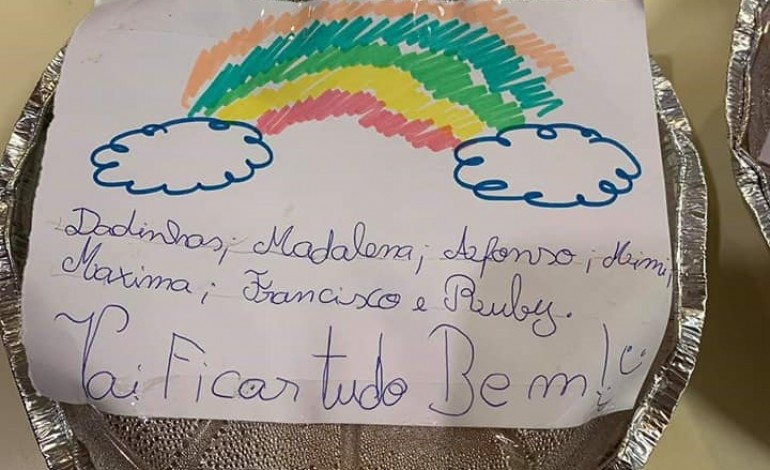 Dadinhas; Madalena; Afonso; Mimi;
Maxima; Francisco e Ruby.
Vai Ficar tudo Bem! c: